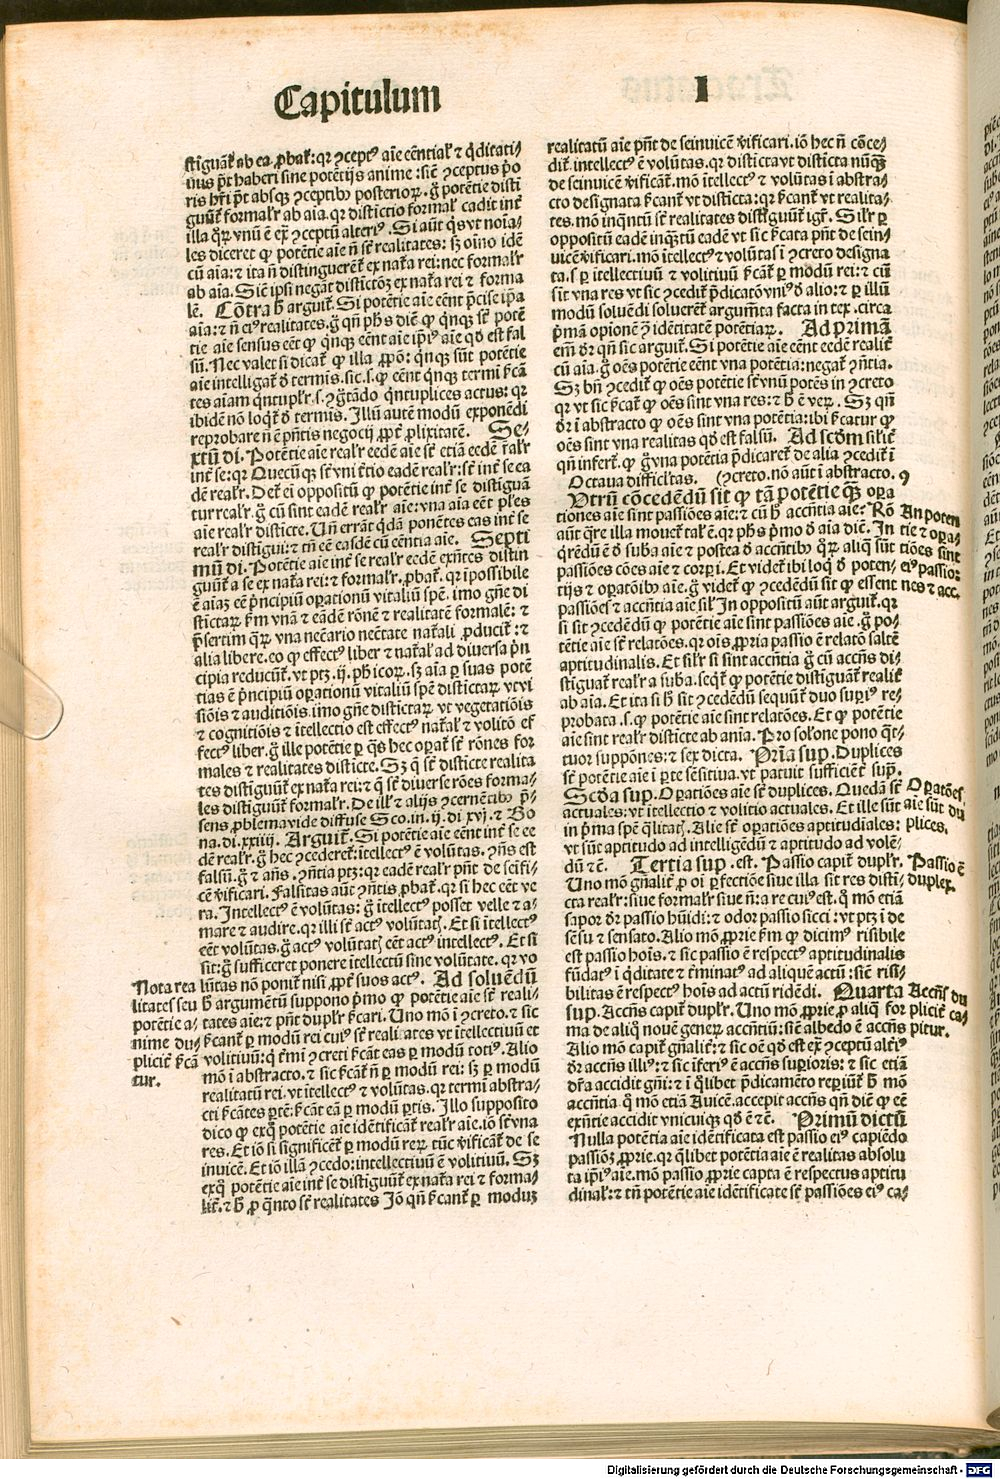 Capitulum I
stīguāt᷑ ab ea. ꝓbat᷑: qr ꝯceptꝰ aīe eēntial᷑ ⁊ q̇dītati/
uus p̄t haberi sine potētijs anime: sic̄ ꝯceptus p̄o
ris hr̄i p̄t absqꝫ ꝯceptibꝰ posterioꝝ. g̊ potētie disti
guūt᷑ formalr̄ ab aīa. qr distictio formal᷑ cadit int̄
illa qꝝ vnū ē ex̄ ꝯceptū alterꝰ. Si aūt q̇s vt noīa/
les diceret ꝙ potētie aīe n̄ sc̄ realitates: sꝫ oīno idē
cū aīa: ⁊ ita n̄ distinguerēt᷑ ex nat̄a rei: nec formalr̄
ab aīa. Sic̄ ipsi negāt distictōꝫ ex nat̄a rei ⁊ forma
lē. Cōtra h̄ arguit᷑. Si potētie aīe eēnt p̄cise ip̄a
aīa: ⁊ n̄ eiꝰ realitates. g̊ qn̄ ph̄s diē ꝙ q̇nqꝫ sc̄ potē
tie aīe sensus eēt ꝙ q̇nqꝫ eēnt aīe ip̄iꝰ aīe qd̄ est fal
sū. Nec valet si dicat᷑ ꝙ illa ꝓpō: q̇nqꝫ sūt potētie
aīe intelligat᷑ d̄ termīs. sic. s. ꝙ eēnt q̇nqꝫ termī ſc̄ā
tes aīam q̇ntuplr̄. s. ꝯgtādo q̇ntuplices actus: qr
ibidē nō loq̇t᷑ d̄ termis. Illū autē modū exponēdi
reprobare n̄ ē pn̄tis negocij ꝓpt̄ ꝓlixitatē. Se/
xtū di. Potētie aīe realr̄ eedē aīe sc̄ etiā eedē r̄alr̄
int̄ se: qr Quecūqꝫ sc̄ vni t̄tio eadē realr̄: sc̄ int̄ se ea
dē realr̄. Det᷑ ei oppositū ꝙ potētie int̄ se distiguā
tur realr̄. g̊ cū sint eadē realr̄ aīe: vna aīa eēt pl̄es
aīe realr̄ disticte. Un̄ errāt q̇dā ponētes eas int̄ se
realr̄ distigui: ⁊ tn̄ eē easdē cū eēntia aīe. Septi
mū di. Potētie aīe int̄ se realr̄ eedē exn̄tes distin
guūt᷑ a se ex nat̄a rei: ⁊ formalr̄. ꝓbat᷑. qr īpossibile
ē aīaꝫ eē p̄ncipiū oꝑationū vitaliū spē. imo gn̄e di
stictaꝝ ẜm vnā ⁊ eādē rōnē ⁊ realitatē formalē: ⁊
p̄sertim qꝝ vna nec̄ario nec̄tate nat̄ali ꝓducit᷑: ⁊
alia libere. eo ꝙ effectꝰ liber ⁊ nat̄al᷑ ad diuersa p̄n
cipia reducūt᷑. vt ptꝫ. ij. phicoꝝ. sꝫ aīa ꝑ suas potē
tias ē p̄ncipiū oꝑationū vitaliū spē distictaꝝ vt vi
siōis ⁊ auditiōis: imo gn̄e distictaꝝ vt vegetatiōis
⁊ cognitiōis ⁊ ītellectio est effectꝰ nat̄al᷑ ⁊ volitō ef
fectꝰ liber. g̊ ille potētie ꝑ q̄s hec oꝑat᷑ sc̄ rōnes for
males ⁊ realitates disticte. Sꝫ q̄ sc̄ disticte realita
tes distiguūt᷑ ex nat̄a rei: ⁊ q̄ sc̄ diuerse rōes forma/
les distiguūt᷑ formalr̄. De il᷑ ⁊ alijs ꝯcernētibꝰ p̄/
sens ꝓblema vide diffuse Sco. in. ij. di. xvj. ⁊ Bo
na. di. xxiiij. Arguit᷑. Si potētie aīe eēnt int̄ se ee
dē realr̄. g̊ hec ꝯcederet᷑: ītellectꝰ ē volūtas. ꝯn̄s est
falsū. g̊ ⁊ an̄s. ꝯn̄tia ptꝫ: qr eadē realr̄ pn̄t de seīfi/
cē v̄ificari. Falsitas aūt ꝯn̄tis ꝓbat᷑. qr si hec eēt ve
ra. Intellectꝰ ē volūtas: g̊ ītellectꝰ posset velle ⁊ a/
mare ⁊ audire. qr illi sc̄ actꝰ volūtatꝫ. Et si ītellectꝰ
eēt volūtas. g̊ actꝰ volūtatꝫ eēt actꝰ intellectꝰ. Et si
sit: g̊ sufficeret ponere ītellectū sine volūtate. qr vo
lūtas nō ponit᷑ nisi ꝓpt̄ suos actꝰ. Ad soluēdū
h̄ argumētū suppono p̄mo ꝙ potētie aīe sc̄ reali/
tates aīe: ⁊ pn̄t duplr̄ ẜcari. Uno mō ī ꝯcreto. ⁊ sic
ẜcant᷑ ꝑ modū rei cuiꝰ sc̄ realitates vt ītellectiuū et
volitiuū: q̄ t̄mi ꝯcreti ẜcāt eas ꝑ modū totiꝰ. Alio
mō ī abstracto. ⁊ sic ẜcāt᷑ n̄ ꝑ modū rei: sꝫ ꝑ modū
realitatū rei. vt ītellectꝰ ⁊ volūtas. qr termī abstra/
cti ẜcātes ꝑtē: ẜcāt ea ꝑ modū ꝑtis. Illo supposito
dico ꝙ exq̄ potētie aīe idētificāt᷑ realr̄ aīe. iō sc̄ vna
res. Et iō si significēt᷑ ꝑ modū reꝝ tūc v̄ificāt᷑ de se
inuicē. Et iō illā ꝯcedo: intellectiuū ē volitiuū. Sꝫ
exq̄ potētie aīe int̄ se distiguūt᷑ ex nat̄a rei ⁊ forma/
lit᷑. ⁊ h̄ ꝓ q̄nto sc̄ realitates Iō qn̄ ẜcant᷑ ꝑ moduꝫ
Nota rea
litates seu
potētie a/
nime du/
plicit᷑ ẜcā
tur.
realitatū aīe pn̄t de seinuicē v̄ificari. iō hec n̄ cōce/
dit᷑. intellectꝰ ē volūtas. qr distictavt disticta nūqꝫ
de seinuicē v̄ificāt᷑. mō ītellectꝰ ⁊ volūtas ī abstra/
cto designata ẜcant᷑ vt disticta: qr ẜcant᷑ vt realita/
tes. mō inq̄ntū sc̄ realitates distīguūt᷑ igt᷑. Silr̄ ꝑ
oppositū eadē inq̄tū eadē vt sic ẜcata pn̄t de sein/
uicē v̄ificari. mō ītellectꝰ ⁊ volūtas ī ꝯcreto designa
ta. s. ꝑ itellectiuū ⁊ volitiuū ẜcāt᷑ ꝑ modū rei: ⁊ cū
sit vna res vt sic ꝯcedit᷑ p̄dicatō vniꝰ d̄ alio: ⁊ ꝑ illū
modū soluēdi soluerēt᷑ argum̄ta facta in tex. circa
p̄mā opionē ꝯ idētitatē potētiaꝝ. Ad primā
em̄ dr̄ qn̄ sic arguit᷑. Si potētie aīe eēnt eedē realit᷑
cū aīa. g̊ oēs potētie eēnt vna potētia: negat᷑ ꝯn̄tia.
Sꝫ bn̄ ꝯcedit᷑ ꝙ oēs potētie sc̄ vnū potēs in ꝯcreto
qr vt sic ẜcat᷑ ꝙ oēs sint vna res: ⁊ h̄ ē veꝝ. Sꝫ qn̄
dr̄ ī abstracto ꝙ oēs sint vna potētia: ibi ẜcatur ꝙ
oēs sint vna realitas qd̄ est falsū. Ad scd̄m silit᷑
qn̄ infert᷑. ꝙ g̊ vna potētia p̄dicaret᷑ de alia ꝯcedit᷑ ī
Octaua difficl̄tas. (ꝯcreto. nō aūt ī abstracto. ꝯ
Utrū cōcedēdū sit ꝙ tā potētie qꝫ oꝑa
tiones aīe sint passiōes aīe: ⁊ cū h̄ accn̄tia aīe: Rō
aūt q̄re illa mouet᷑ tal᷑ ē. qr ph̄s p̄mo d̄ aīa diē. In
q̇rēdū ē d̄ suba aīe ⁊ postea d̄ accn̄tibꝰ qꝝ aliq̄ sūt
passiōes cōes aīe ⁊ corꝑi. Et videt᷑ ibi loq̇ d̄ poten/
tijs ⁊ oꝑatōibꝰ aīe. g̊ videt᷑ ꝙ ꝯcedēdū sit ꝙ essent
passiōes ⁊ accn̄tia aīe sil᷑ In oppositū aūt arguit᷑. qr
si sit ꝯcedēdū ꝙ potētie aīe sint passiōes aīe. g̊ po/
tētie aīe sc̄ relatōes. qr oīs ꝓpria passio ē relatō saltē
aptitudinalis. Et silr̄ si sint accn̄tia g̊ cū accn̄s di/
stiguat᷑ realr̄ a suba. seq̇t᷑ ꝙ potētie distiguāt᷑ realit᷑
ab aīa. Et ita si h̄ sit ꝯcedēdū sequūt᷑ duo supiꝰ re/
probata. s. ꝙ potētie aīe sint relatōes. Et ꝙ potētie
aīe sint realr̄ disticte ab anīa. Pro solōne pono q̇t/
tuor suppōnes: ⁊ sex dicta. Prīa sup. Duplices
sc̄ potētie aīe ī ꝑte sēsitiua. vt patuit sufficiēt᷑ sup̄.
Scd̄a sup. Oꝑatiōes aīe sc̄ duplices. Quedā sc̄
actuales: vt itellectio ⁊ volitio actuales. Et ille sūt
in p̄ma spē q̄litatꝫ. Alie sc̄ oꝑatiōes aptitudiales:
vt sūt aptitudo ad intelligēdū ⁊ aptitudo ad volē/
dū ⁊c̄. Tertia sup. est. Passio capit᷑ duplr̄.
Uno mō gn̄alit᷑ ꝓ oī ꝑfectiōe siue illa sit res disti/
cta realr̄: siue formalr̄ siue n̄: a re cuiꝰ est. q̊ mō etiā
sapor dr̄ passio hūidi: ⁊ odor passio sicci: vt ptꝫ ī de
sēsu ⁊ sensato. Alio mō ꝓprie ẜm ꝙ dicimꝰ risibile
est passio hoīs. ⁊ sic passio ē respectꝰ aptitudinalis
fūdatꝰ ī q̇ditate ⁊ t̄minatꝰ ad aliquē actū: sic̄ risi/
bilitas ē respectꝰ hoīs ad actū ridēdi. Quarta
sup. Accn̄s capit᷑ duplr̄. Uno mō ꝓprie ꝓ aliq̊ for
ma de aliq̊ nouē geneꝝ accn̄tiū: sic̄ albedo ē accn̄s
Alio mō capit᷑ gn̄alit᷑: ⁊ sic oē qd̄ est ex̄ ꝯceptū alt̄iꝰ
dr̄ accn̄s illiꝰ: ⁊ sic iferiꝰ ē accn̄s suꝑioris: ⁊ sic etiā
dr̄a accidit gn̄i: ⁊ ī q̇libet p̄dicamēto reꝑiūt᷑ h̄ mō
accn̄tia. q̊ mō etiā Auicē. accepit accn̄s qn̄ diē ꝙ eē
exn̄tie accidit vnicuiqꝫ qd̄ ē ⁊c̄. Primū dictū
Nulla potētia aīe idētificata est passio eiꝰ capiēdo
passiōꝫ ꝓprie. qr q̇libet potētia aīe ē realitas absolu
ta ip̄iꝰ aīe. mō passio ꝓprie capta ē respectus aptitu
dinal᷑: ⁊ tn̄ potētie aīe idētificate sc̄ passiōes eiꝰ ca/
An poten
tie ⁊ oꝑa/
tiōes sint
eiꝰ passio:
nes ⁊ acc.
Oꝑatōes
aīe sūt du
plices.
Passio ē
duplex.
Accn̄s du
plicit᷑ ca/
pitur.
Digitalisierung gefördert durch die Deutsche Forschungsgemeinschaft - DFG